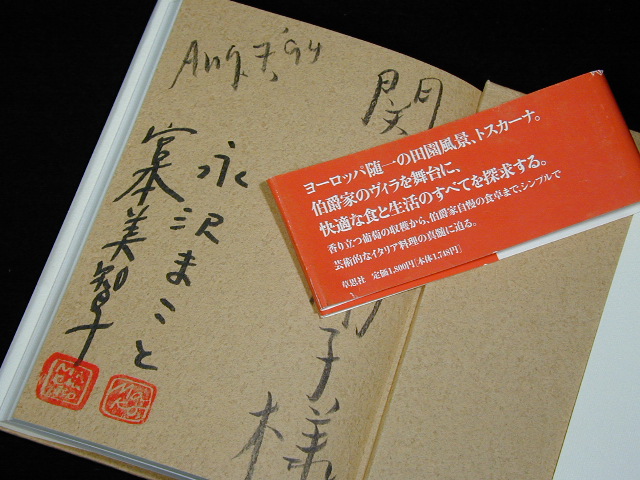 Aug. 7, '94
関
子様
永沢まこと
宮本美智子
ヨーロッパ随一の田園風景、トスカーナ。
伯爵家のヴィラを舞台に、
快適な食と生活のすべてを探求する。
香り立つ葡萄の収穫から、伯爵家自慢の食卓まで、シンプルで
芸術的なイタリア料理の真髄に迫る。
草思社 定価1,800円[本体1,748円]